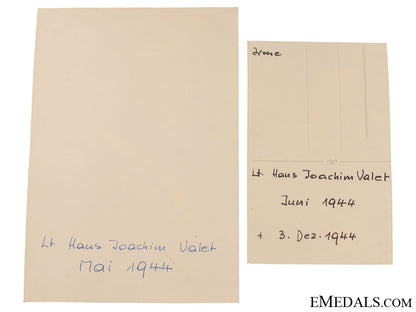 Lt Hans Joachim Valet
Mai 1944
Irme
Lt. Hans Joachim Valet
Juni 1944
+ 3. Dez. 1944
EMEDALS.COM